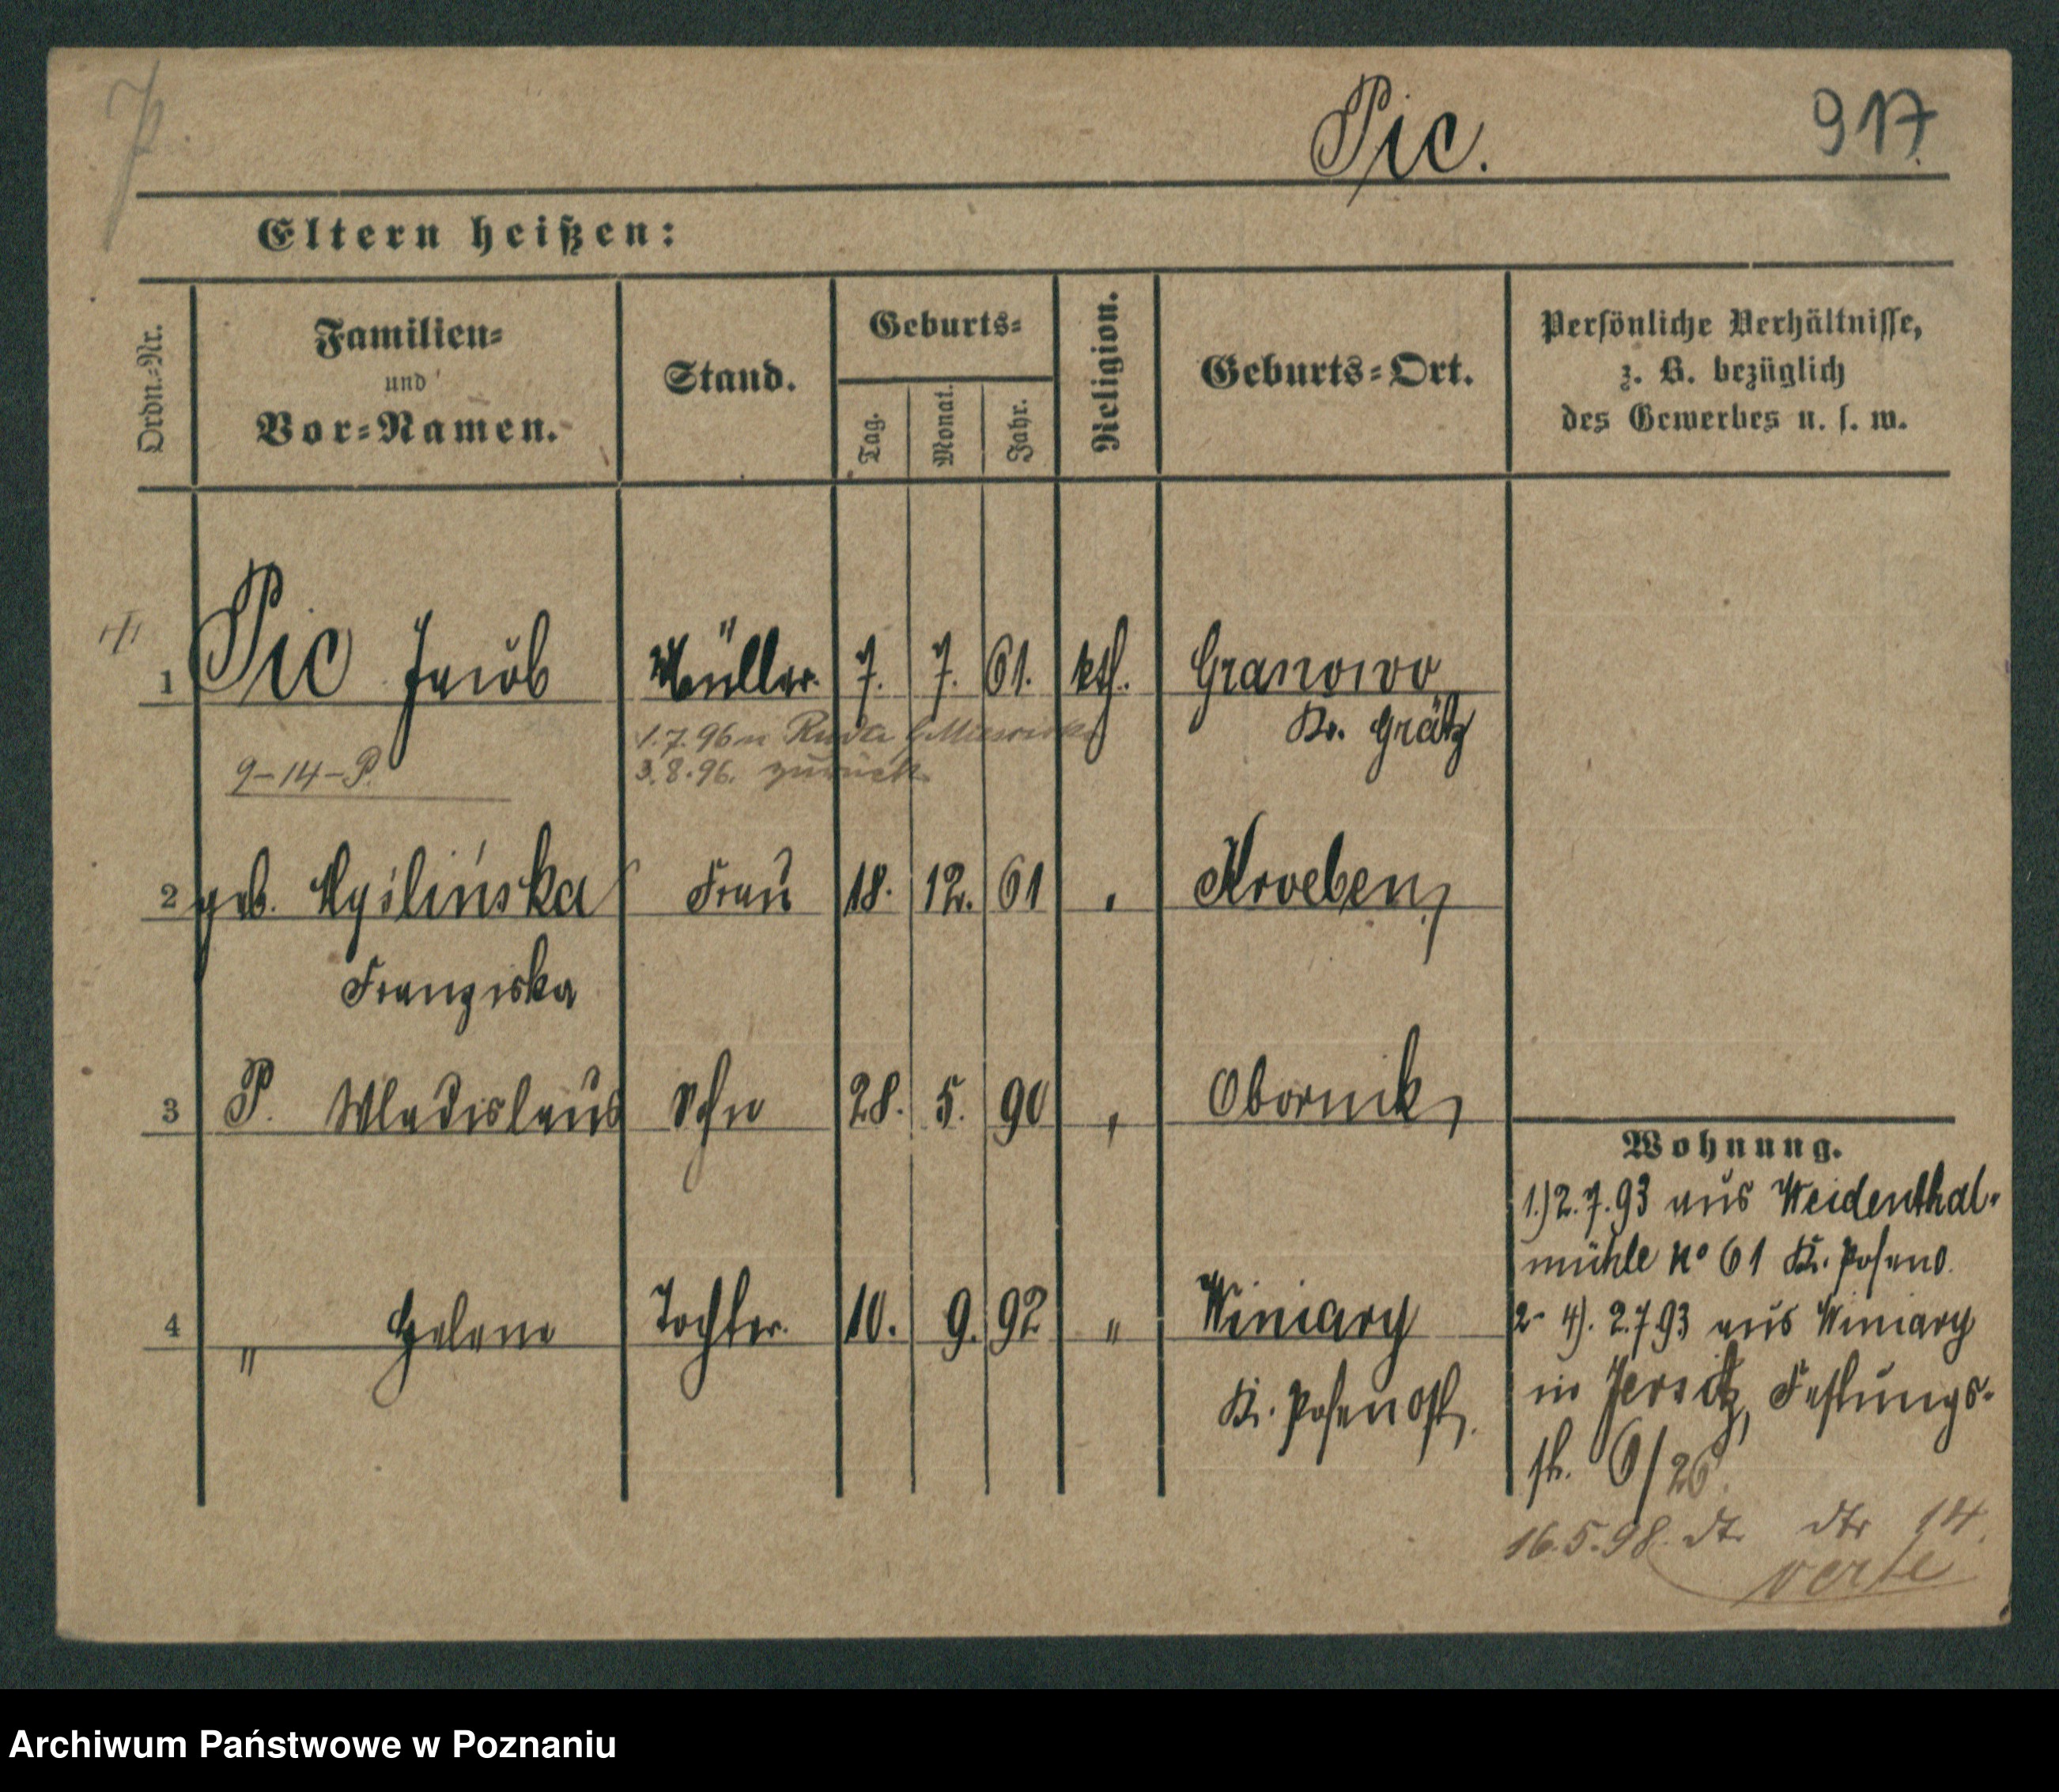 Pic. 917
Eltern heißen:
Ordn.-Nr.
Familien-
und
Vor-Namen.
Stand.
Geburts-
Tag.
Monat.
Jahr.
Religion.
Geburts-Ort.
Persönliche Verhältnisse,
z. B. bezüglich
des Gewerbes u. s. w.
1 Pic Jacob Müller 7. 7. 61. kth. Granowo
Kr. Grätz
1.7.96 n Ruda
9-14-P. 3.8.96. zurück
2 geb. Frau 18. 12. 61 " Kroeben
Franziska
3 P. Wladislaus Sohn 28. 5. 90 " Obornik
4 " Helene Tochter 10. 9. 92 " Winiary
Kr. Posen Ost
Wohnung.
1.) 2.7.93 aus Weidenthal-
mühle No 61 Kr. Posen O.
2- 4). 2.7.93 aus Winiary
in Jersitz, Festungs-
str. 6/26.
16.5.98. dt. dto 14.
verte
Archiwum Państwowe w Poznaniu